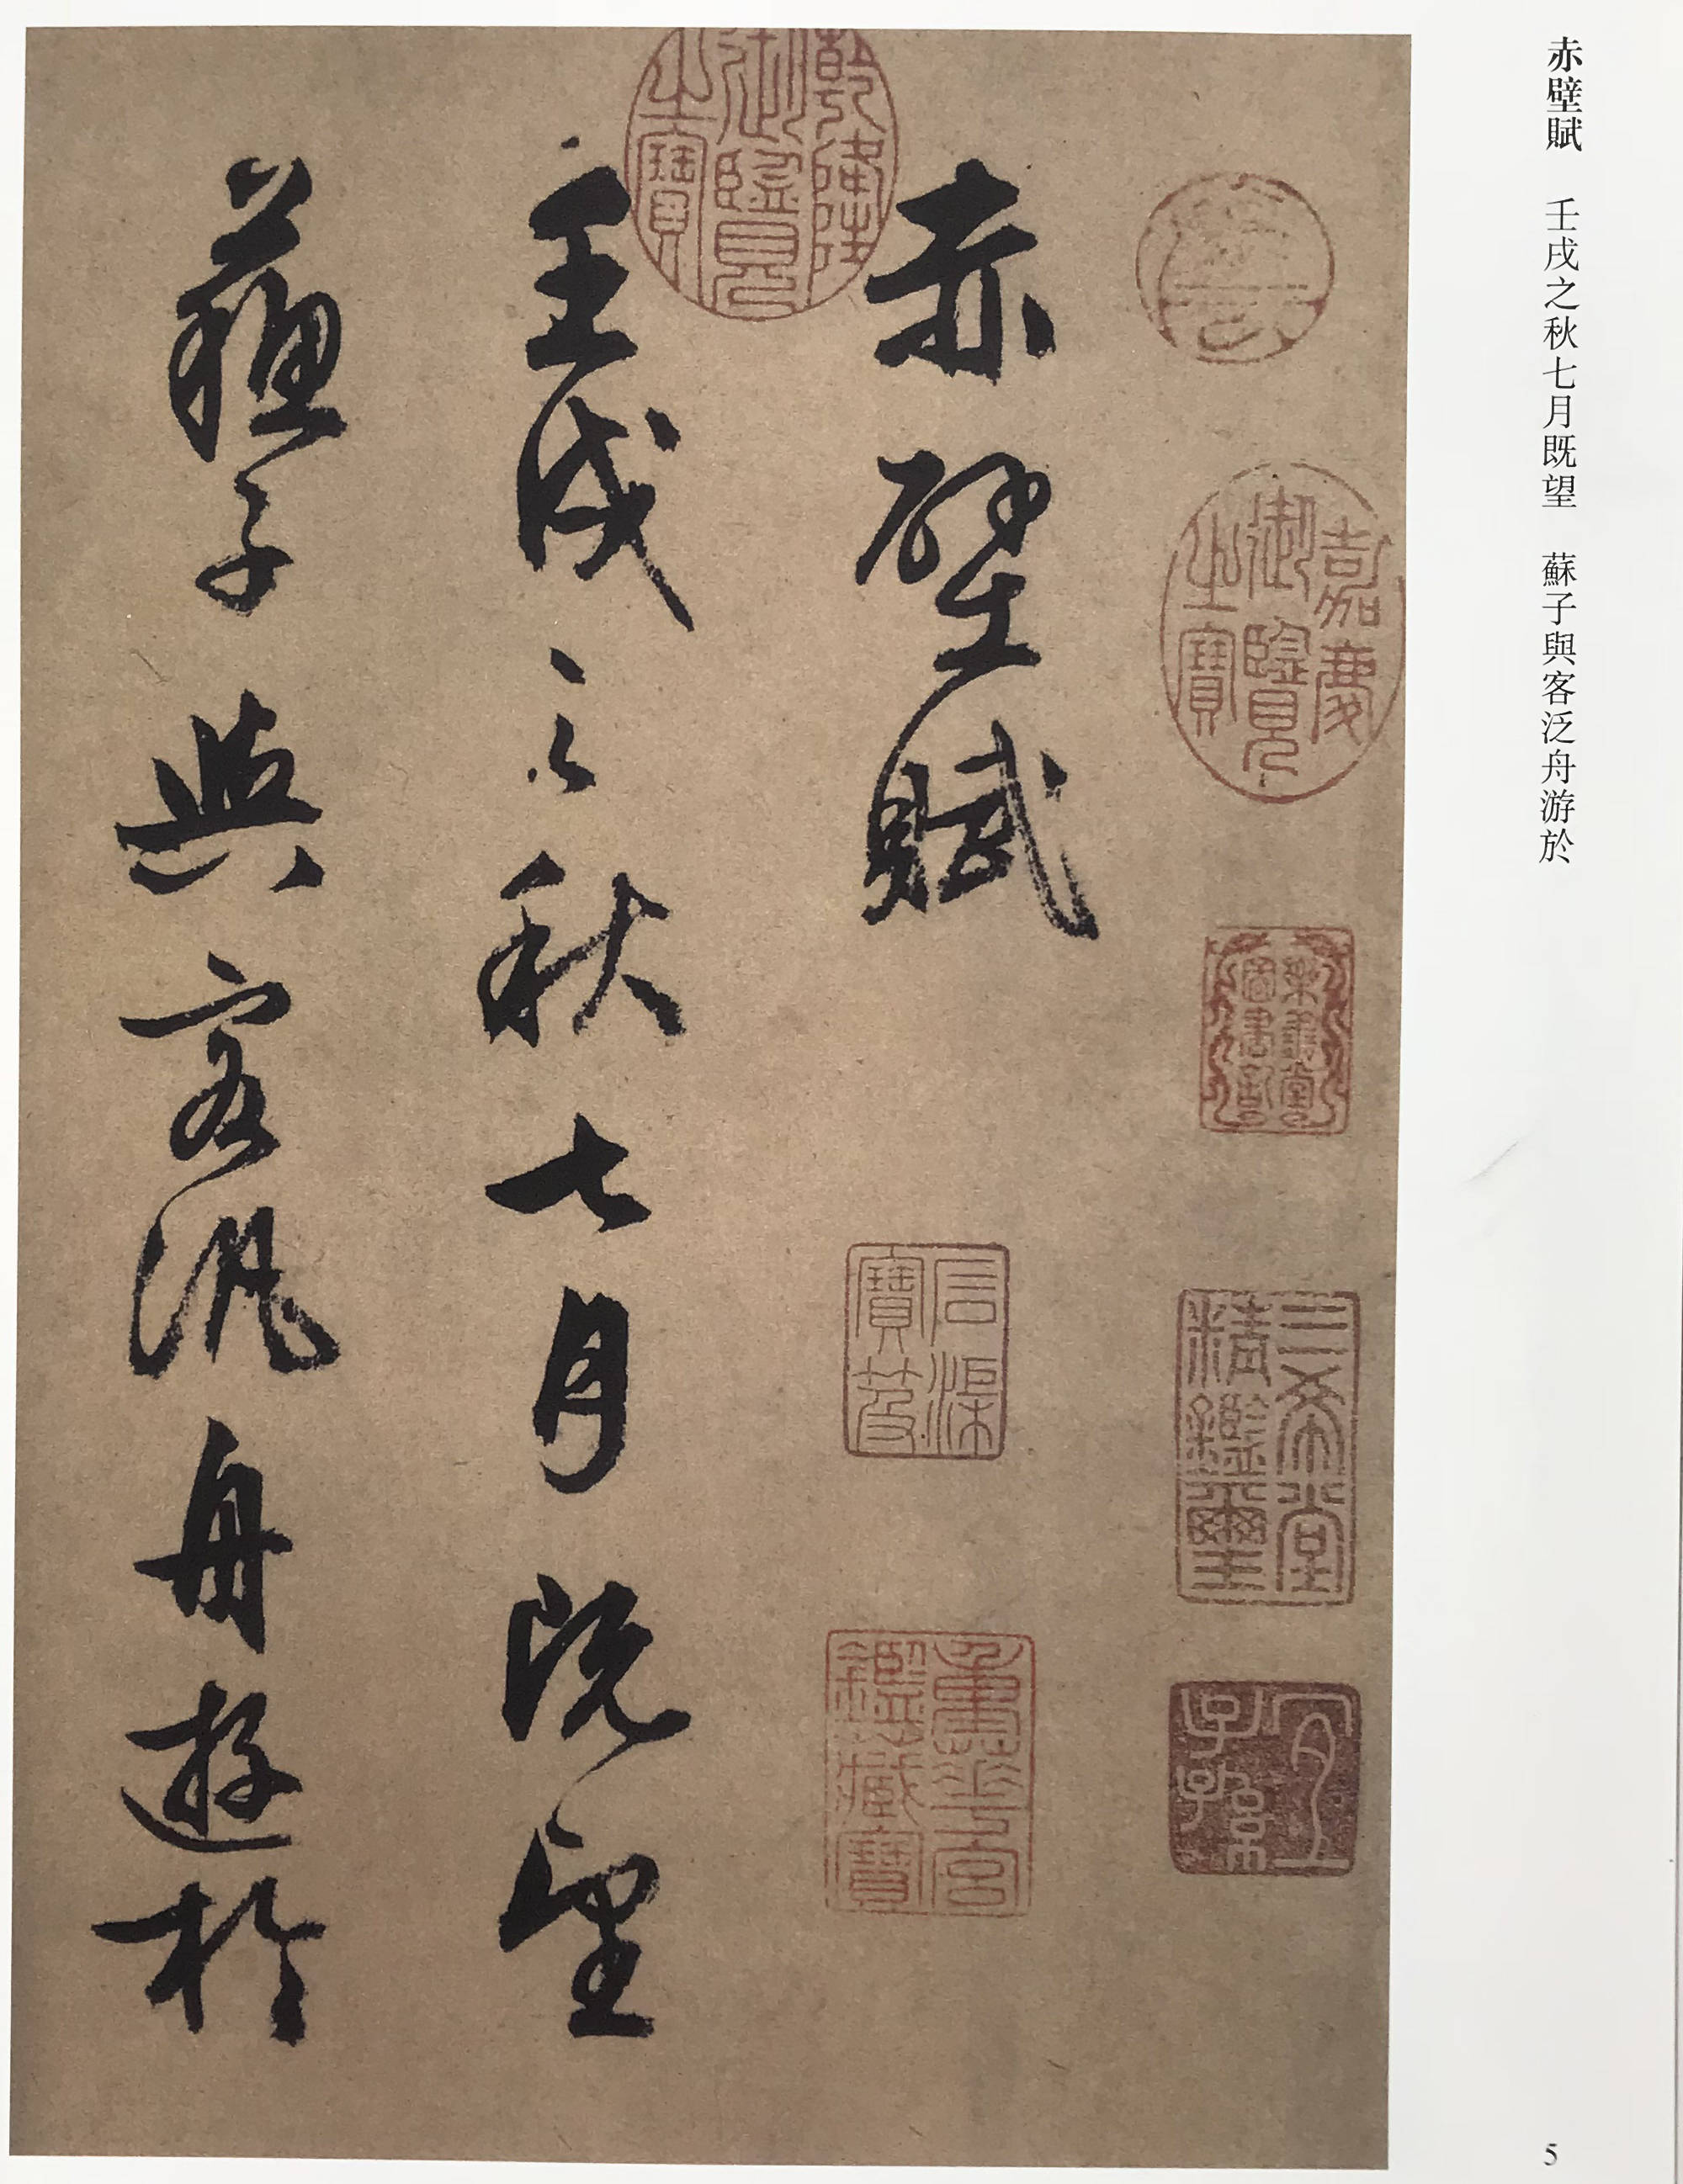 赤壁賦　壬戌之秋七月既望　蘇子與客泛舟游於
乾隆御覽之寶
嘉慶御覽之寶
樂善堂圖書記
三希堂精鑑璽
宜子孫
赤壁賦
寶笈
壬戌之秋七月既望
蘇子與客汎舟遊於
5